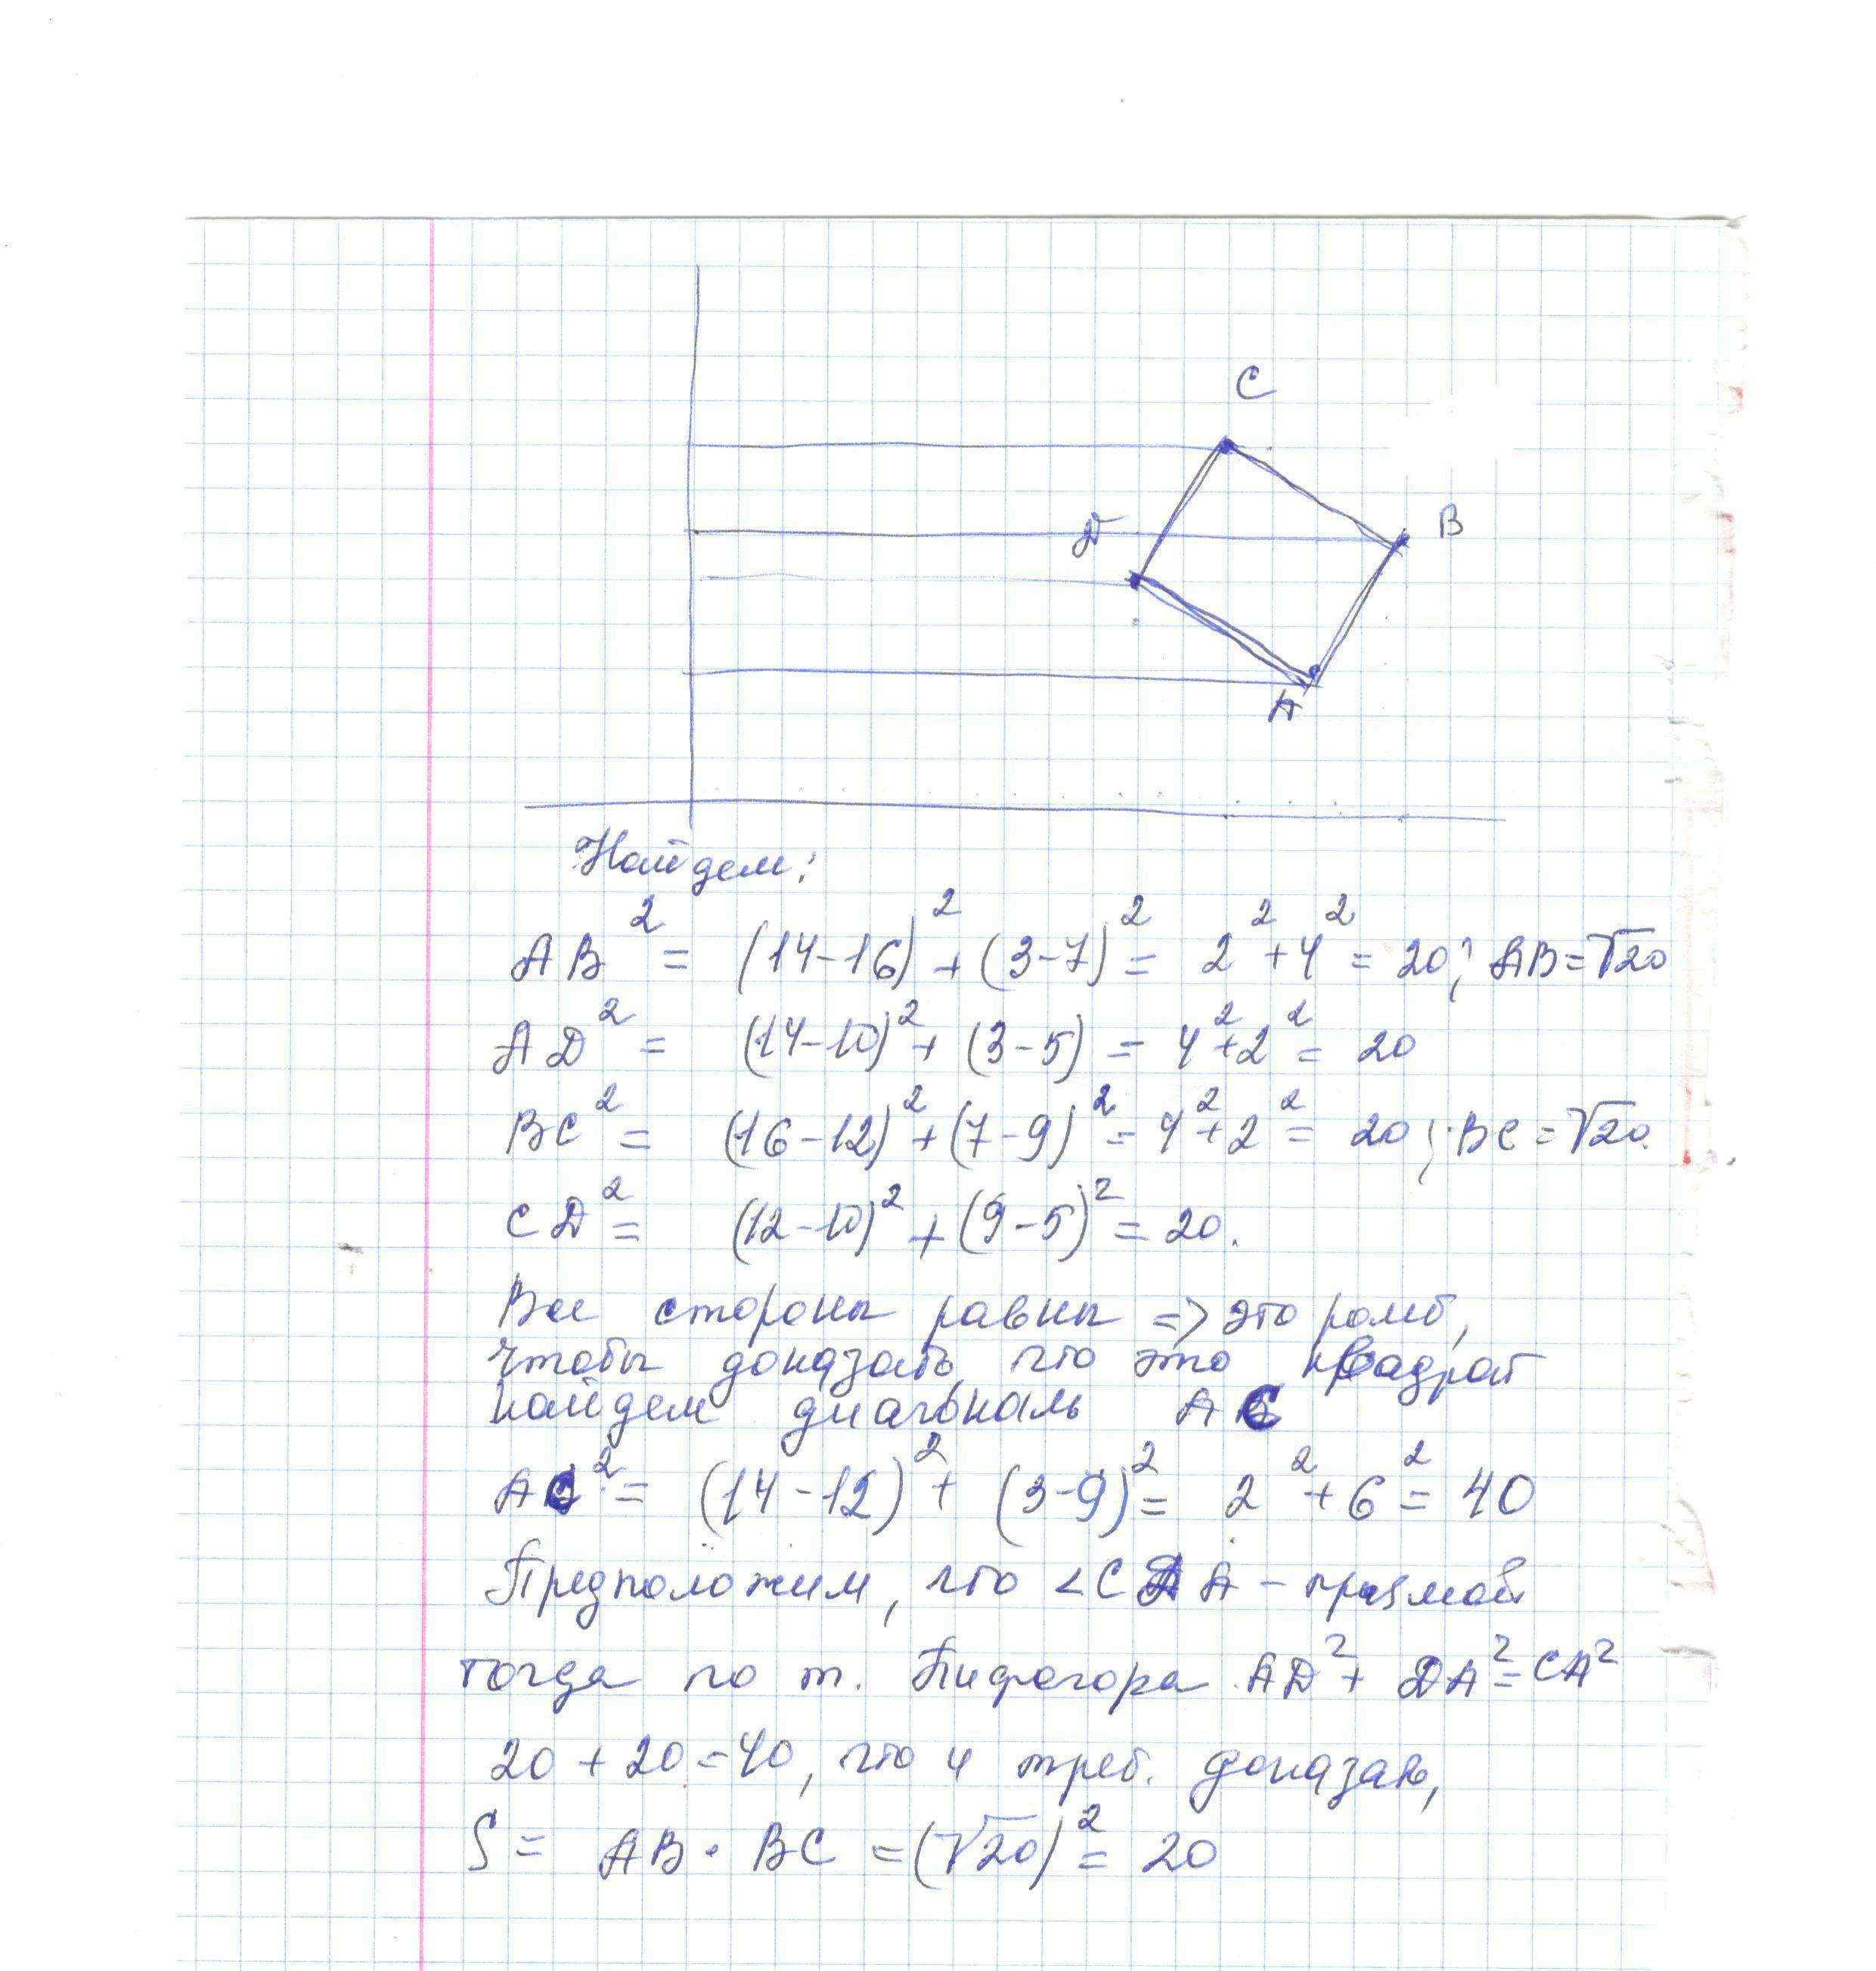 C
D
B
A
Найдем:
AB² = (14-16)² + (3-7)² = 2² + 4² = 20; AB = √20
AD² = (14-10)² + (3-5) = 4² + 2² = 20
BC² = (16-12)² + (7-9)² = 4² + 2² = 20; BC = √20.
CD² = (12-10)² + (9-5)² = 20.
Все стороны равны => это ромб,
чтобы доказать, что это квадрат
найдем диагональ AC
AC² = (14-12)² + (3-9)² = 2² + 6² = 40
Предположим, что <CDA - прямой
тогда по т. Пифагора AD² + DA² = CA²
20 + 20 = 40, что и треб. доказать,
S = AB · BC = (√20)² = 20